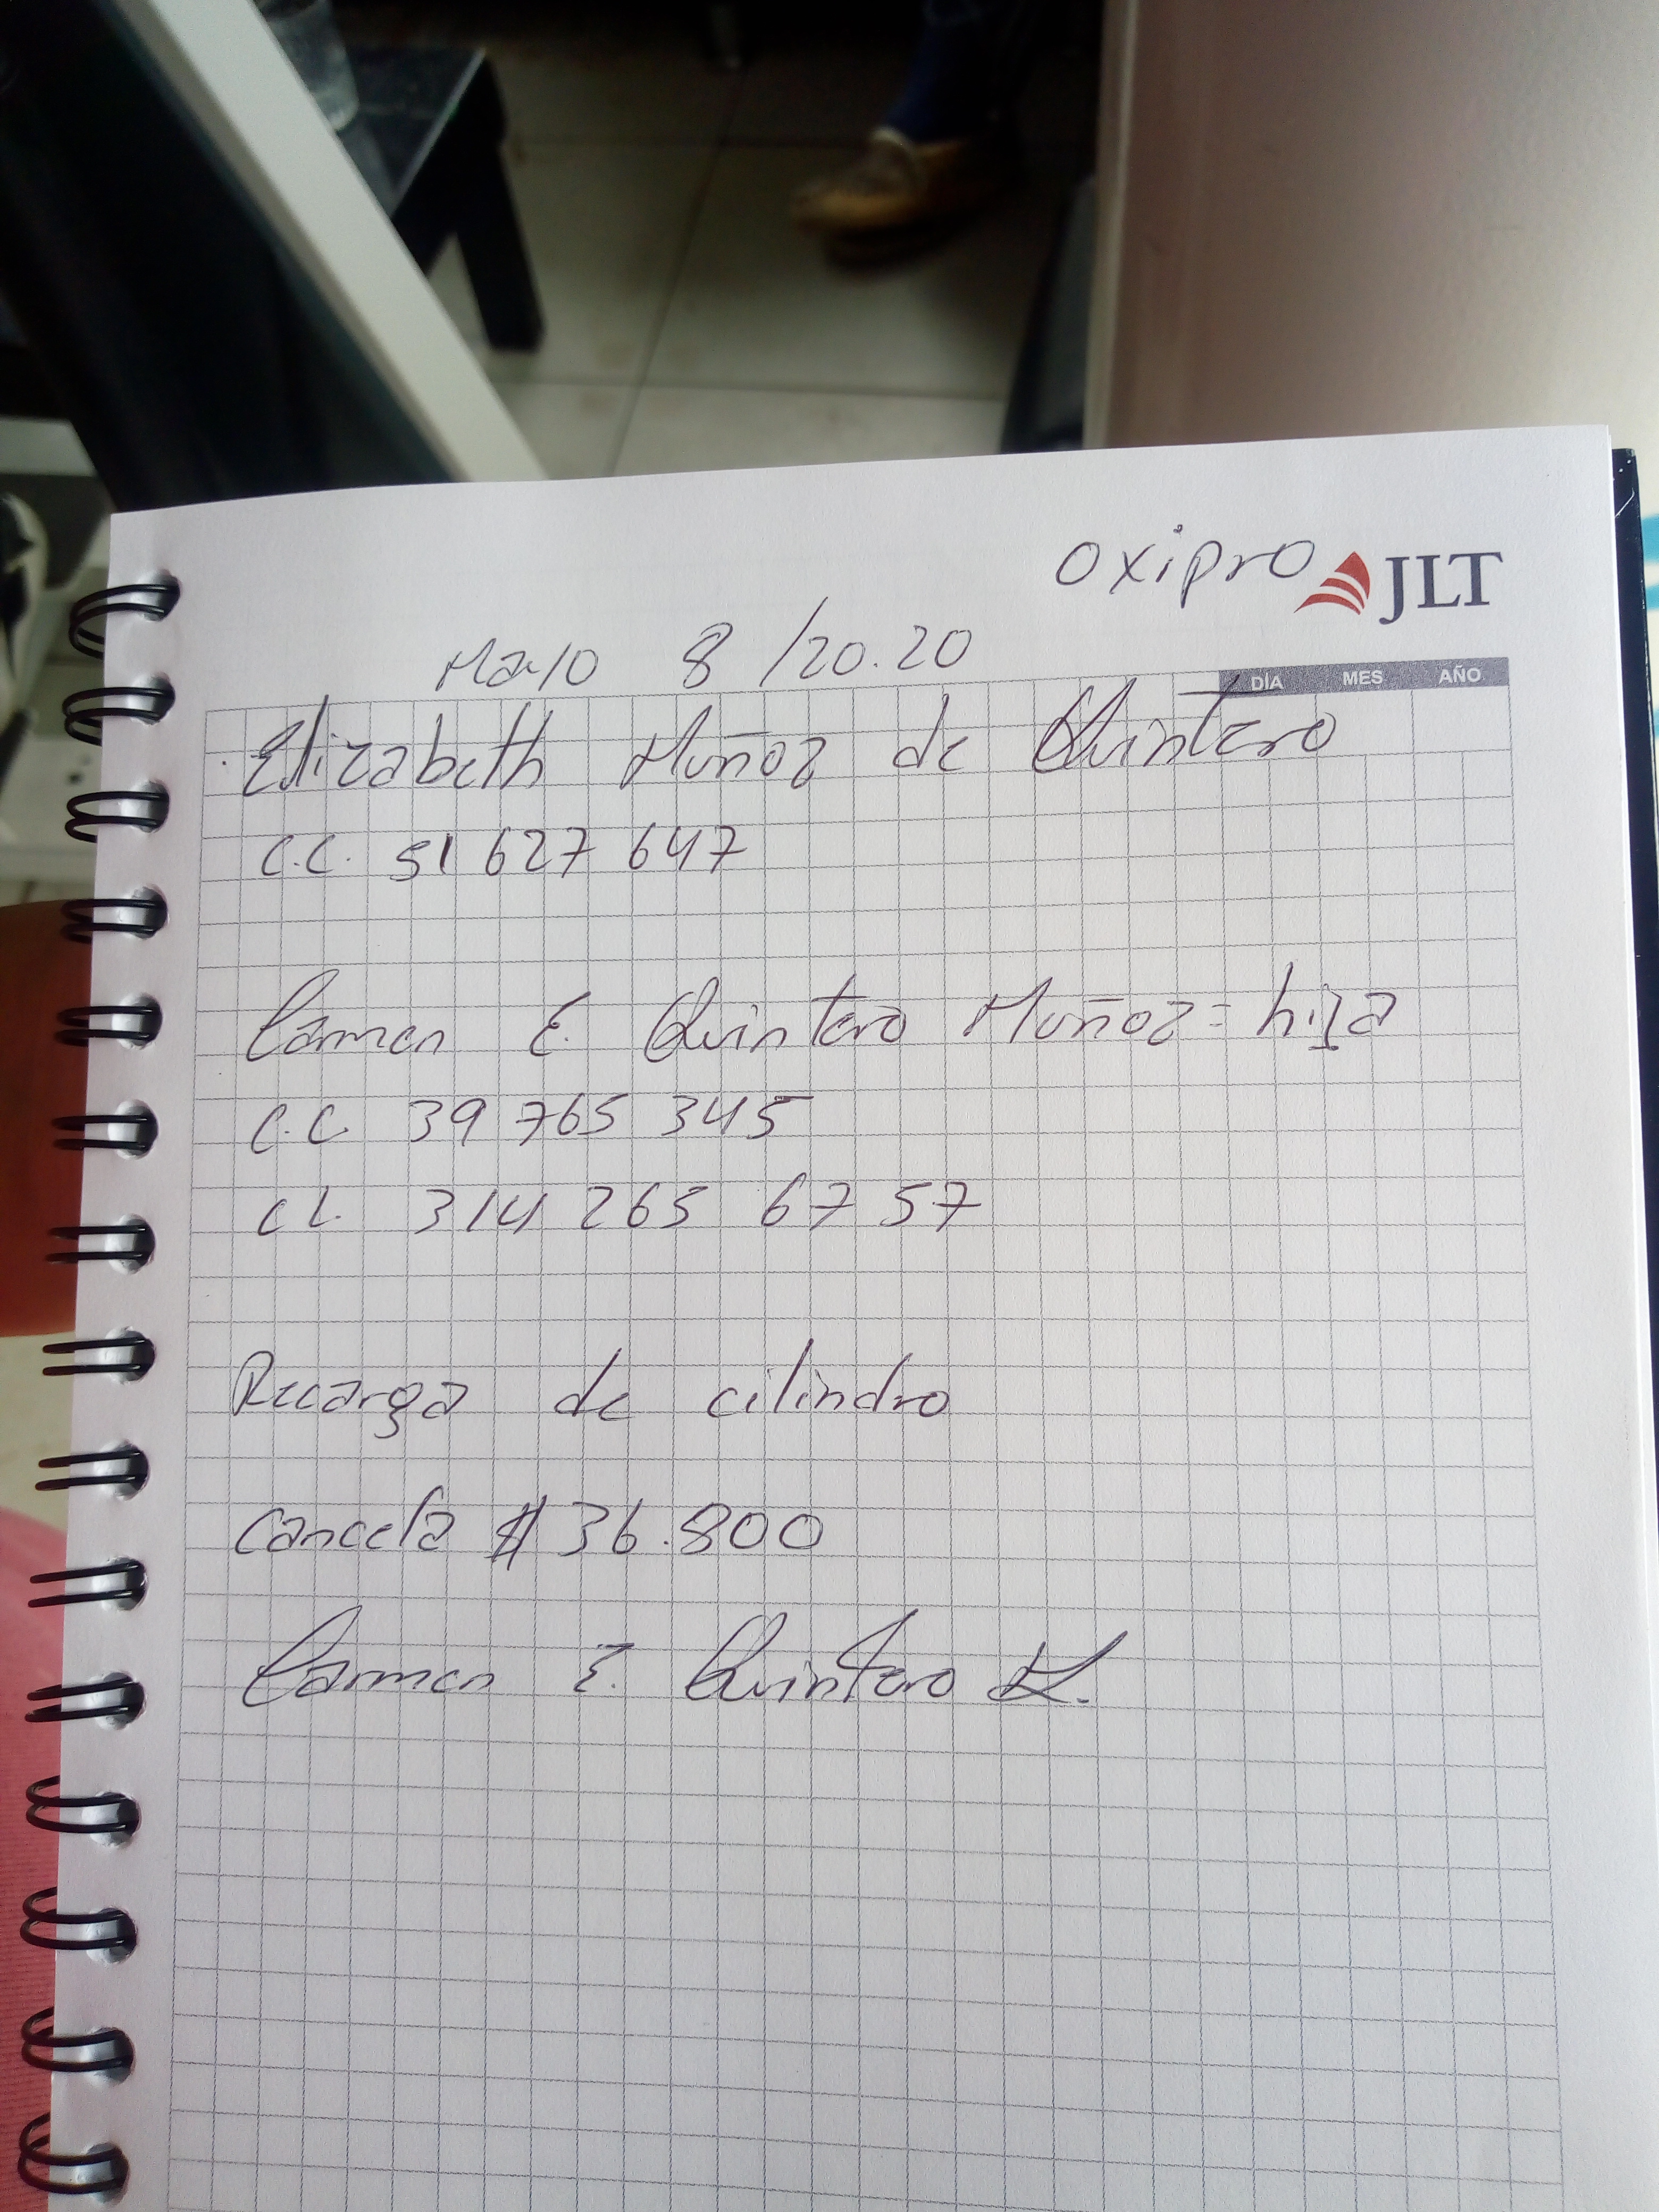 oxipro JLT
Mayo 8 /20.20
DÍA MES AÑO
Elizabeth Muñoz de Quintero
C.C. 51 627 647
Carmen E. Quintero Muñoz = hija
C.C. 39 765 345
CL. 314 265 67 57
Recarga de cilindro
Cancela $ 36.800
Carmen E. Quintero M.